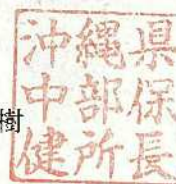 樹
沖縄県
中部保
健所長